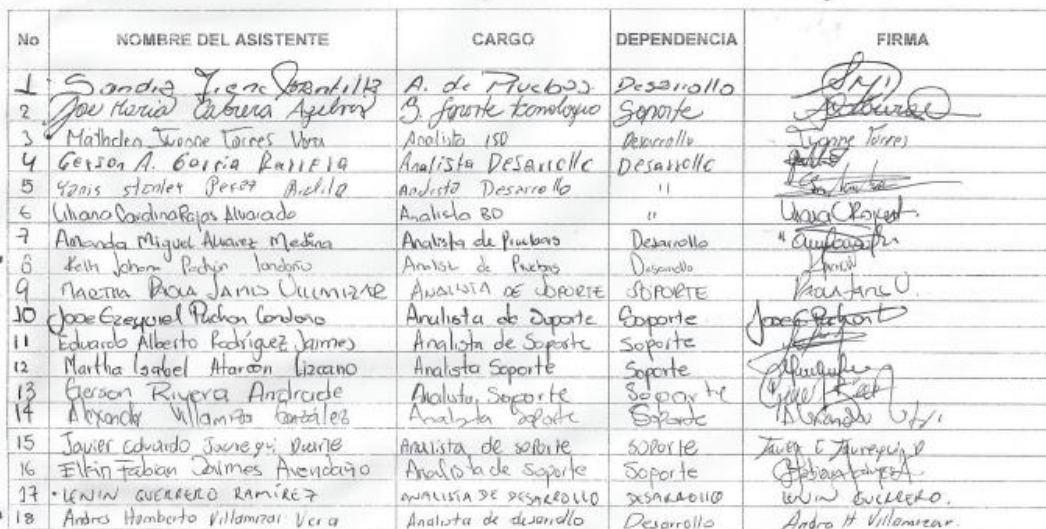 No NOMBRE DEL ASISTENTE CARGO DEPENDENCIA FIRMA
1 Sandra A. de Pruebas Desarrollo
2 Jose Maria Cabrera S. Soporte Soporte
3 Mathelen Ivonne Torres Vera Analista ISO Desarrollo Ivonne Torres
4 Gerson A. Garcia Barrera Analista Desarrollo Desarrollo
5 Yanis stanley Perez Ardila Analista Desarrollo "
6 Liliana Carolina Rojas Alvarado Analista BD "
7 Amanda Miguel Alvarez Medina Analista de Pruebas Desarrollo
8 Kelly Johana Londoño Analista de Pruebas Desarrollo
9 MARTHA PAOLA JAIMES VILLAMIZAR ANALISTA DE SOPORTE SOPORTE
10 Jose Ezequiel Puchon Londoño Analista de Soporte Soporte
11 Eduardo Alberto Rodríguez Jaimes Analista de Soporte Soporte
12 Martha Isabel Lizcano Analista Soporte Soporte
13 Gerson Rivera Andrade Analista Soporte Soporte
14 Alexander Villamizar González Analista Soporte Soporte
15 Javier Eduardo Jauregui Duarte Analista de soporte SOPORTE
16 Elkin Fabian Jaimes Avendaño Analista de Soporte Soporte
17 LENIN GUERRERO RAMÍREZ ANALISTA DE DESARROLLO DESARROLLO LENIN GUERRERO.
18 Andres Humberto Villamizar Vera Analista de desarrollo Desarrollo Andres H Villamizar.